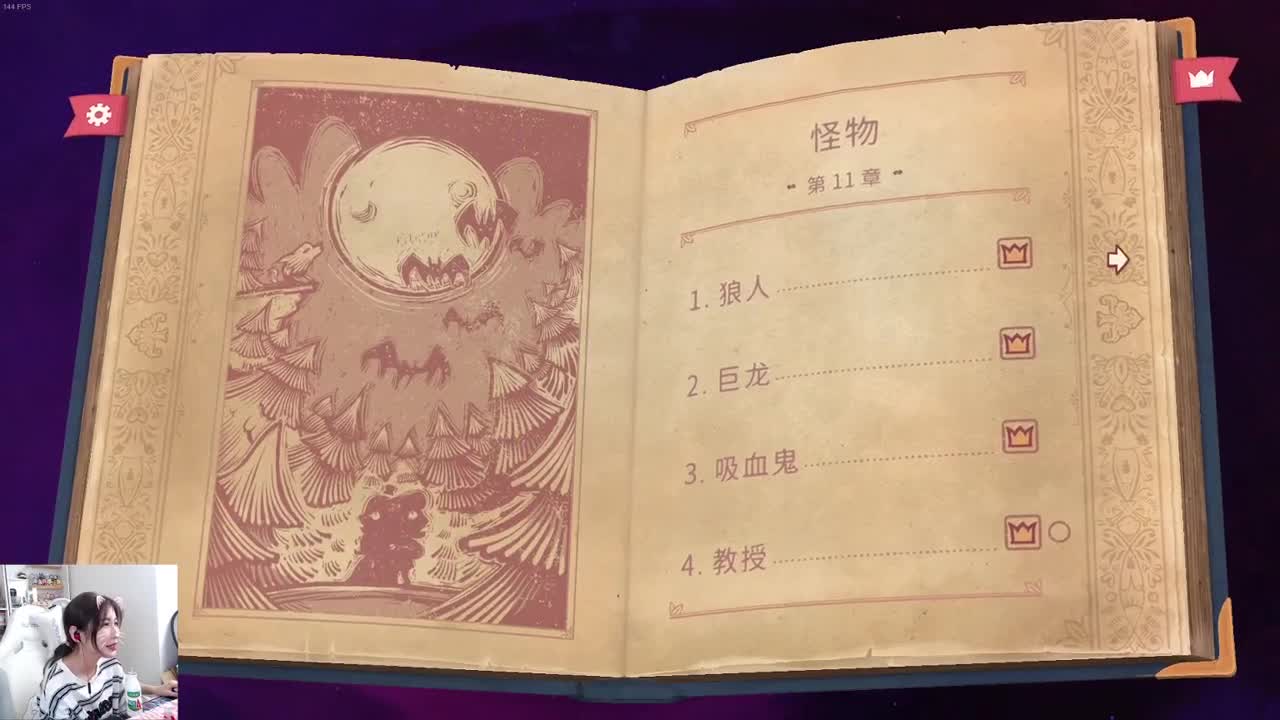 144 FPS
怪物
第 11 章
1. 狼人
2. 巨龙
3. 吸血鬼
4. 教授